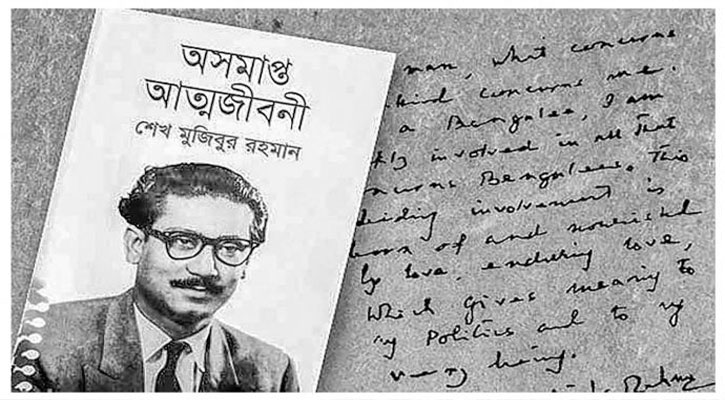 অসমাপ্ত
আত্মজীবনী
শেখ মুজিবুর রহমান
man, what concerns
concerns me.
a Bengalee, I am
involved in all that
Bengalees. This
involvement is
born of and nourished
by love, enduring love,
which gives meaning to
my Politics and to my
very being.